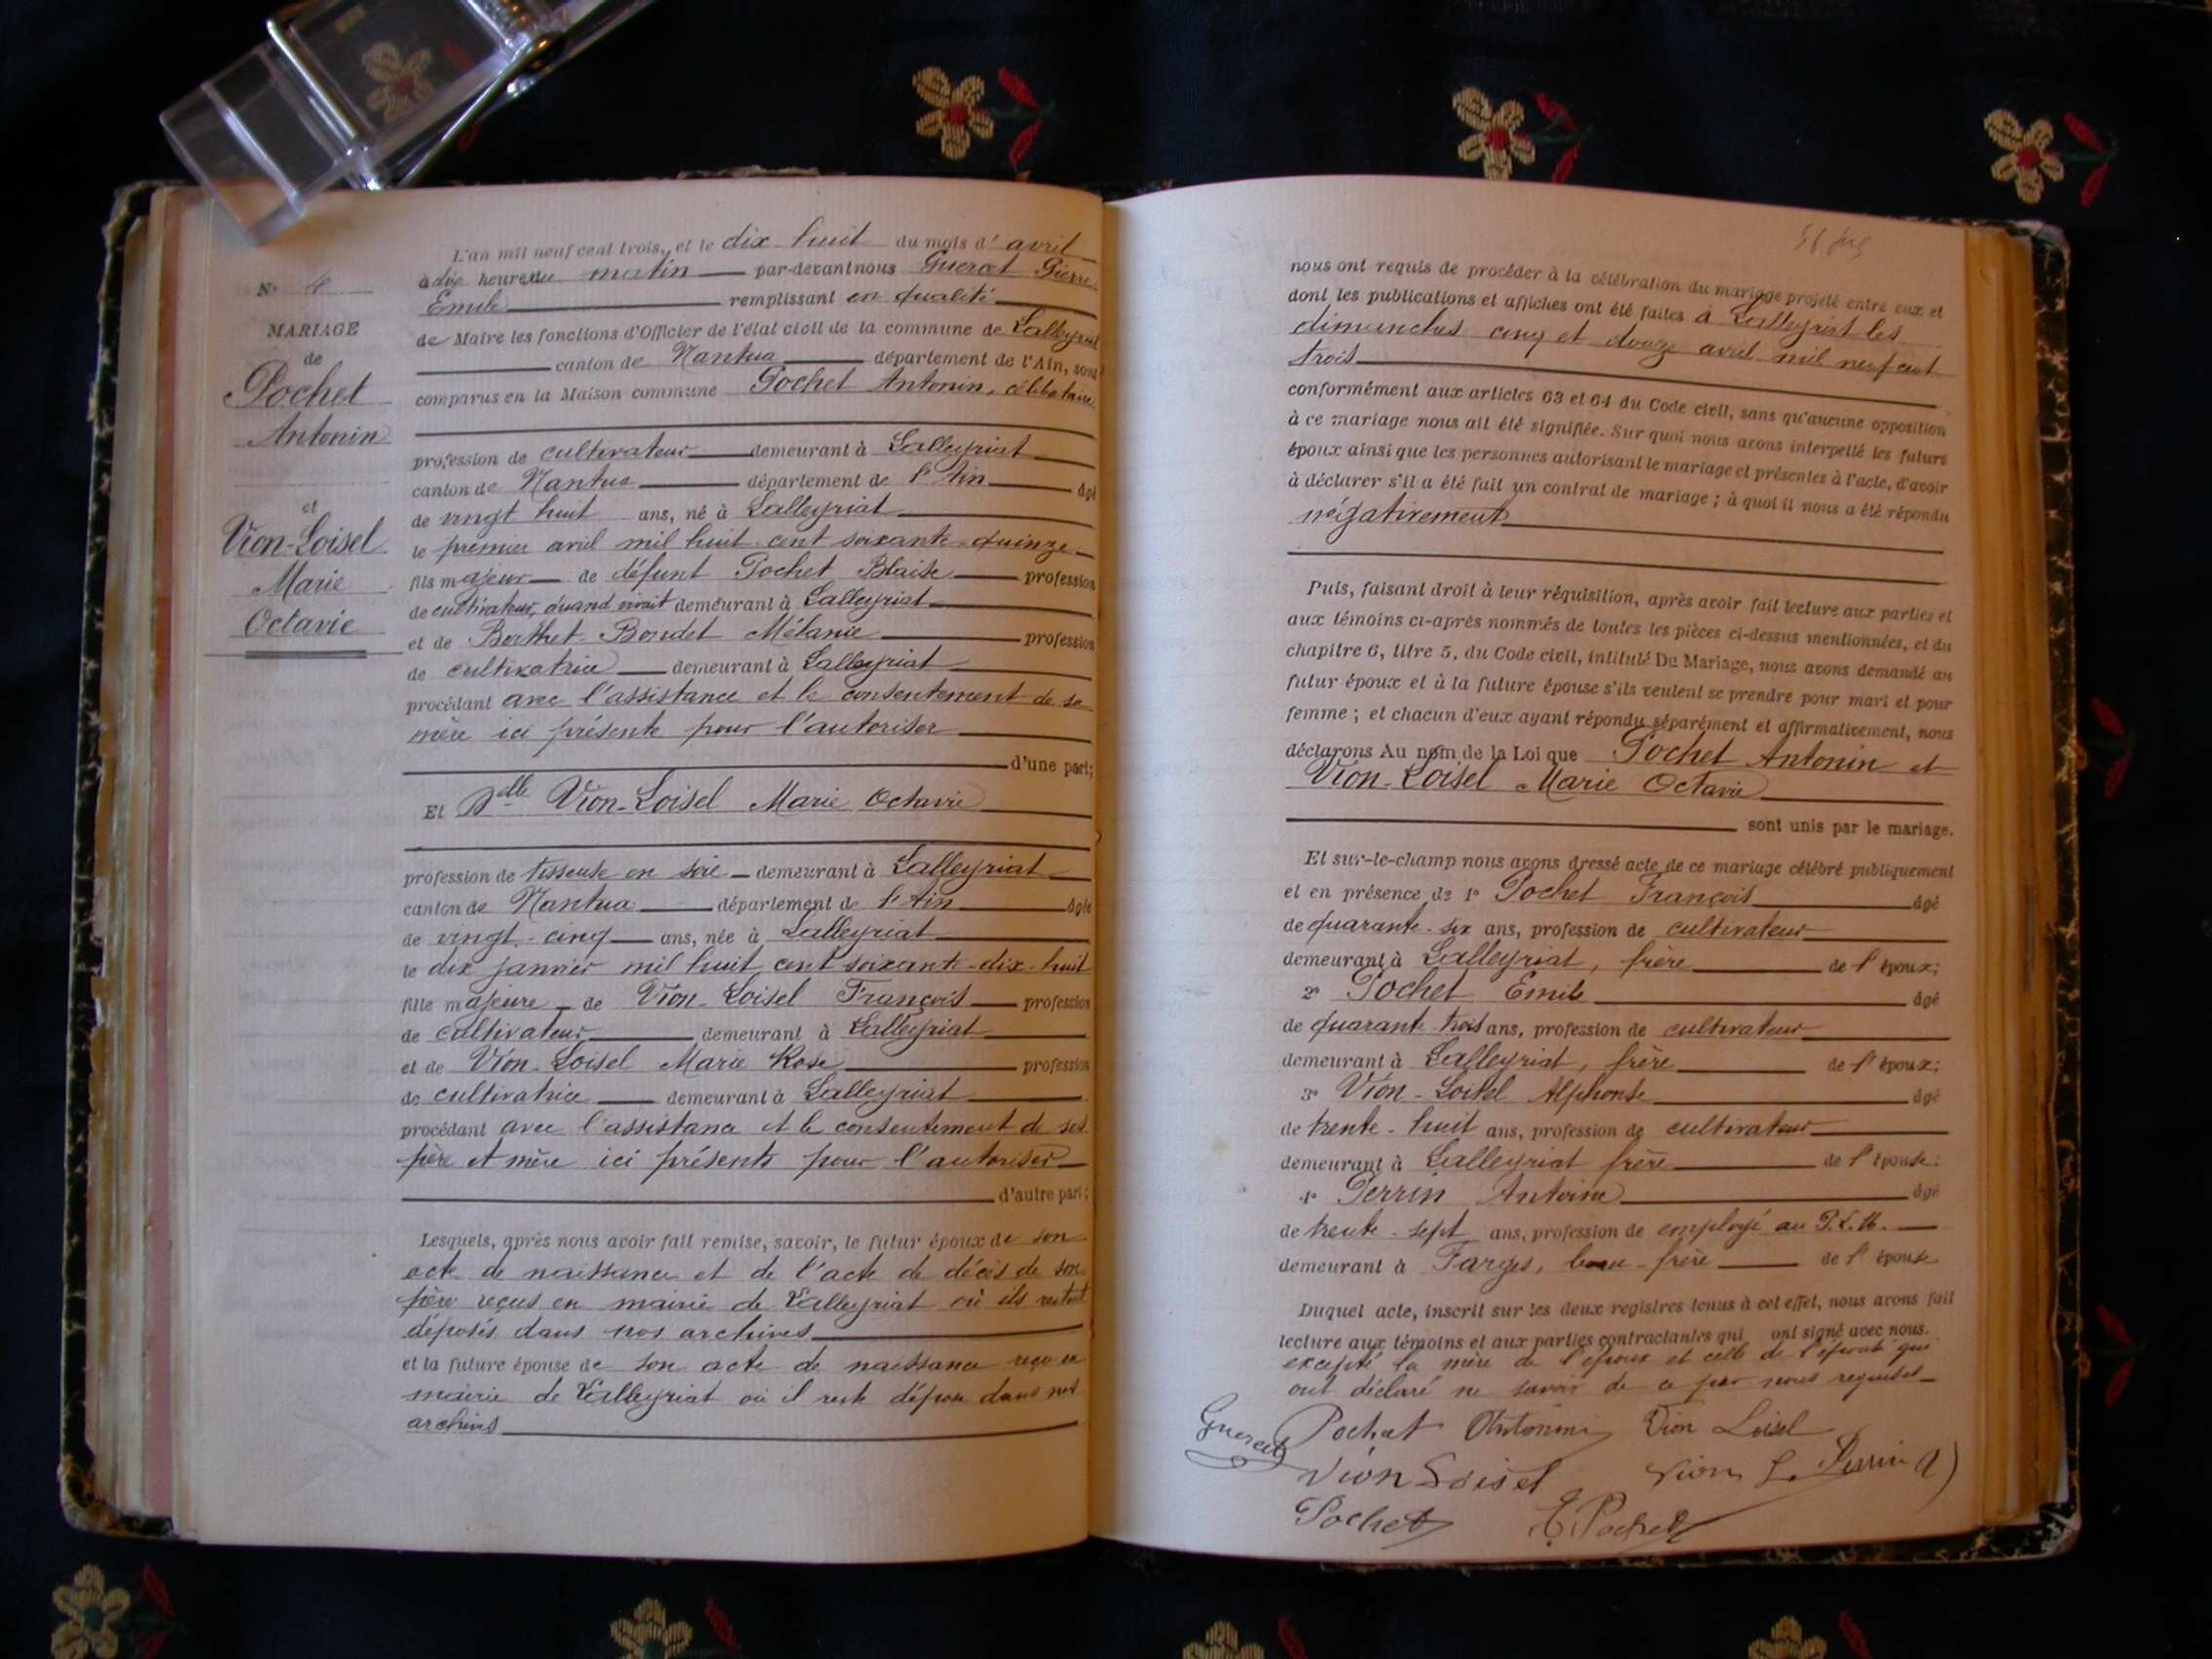 N° 4
MARIAGE
de
Pochet
Antonin
et
Vion-Loisel
Marie
Octavie
L'an mil neuf cent trois, et le dix-huit du mois d'avril
à dix heures du matin par-devant nous Guerat Pierre
Emile remplissant en qualité
de Maire les fonctions d'Officier de l'état civil de la commune de Lalleyriat
canton de Nantua département de l'Ain, sont
comparus en la Maison commune Pochet Antonin, célibataire
profession de cultivateur demeurant à Lalleyriat
canton de Nantua département de l'Ain âgé
de vingt huit ans, né à Lalleyriat
le premier avril mil huit cent soixante-quinze
fils majeur de défunt Pochet Blaise profession
de cultivateur, quand vivait demeurant à Lalleyriat
et de Berthet-Bondet Mélanie profession
de cultivatrice demeurant à Lalleyriat
procédant avec l'assistance et le consentement de sa
mère ici présente pour l'autoriser
d'une part;
Et Delle Vion-Loisel Marie Octavie
profession de tisseuse en soie demeurant à Lalleyriat
canton de Nantua département de l'Ain âgée
de vingt-cinq ans, née à Lalleyriat
le dix janvier mil huit cent soixante-dix-huit
fille majeure de Vion-Loisel François profession
de cultivateur demeurant à Lalleyriat
et de Vion-Loisel Marie Rose profession
de cultivatrice demeurant à Lalleyriat
procédant avec l'assistance et le consentement de ses
père et mère ici présents pour l'autoriser
d'autre part;
Lesquels, après nous avoir fait remise, savoir, le futur époux de son
acte de naissance et de l'acte de décès de son
père reçus en mairie de Lalleyriat où ils restent
déposés dans nos archives
et la future épouse de son acte de naissance reçu en
mairie de Lalleyriat où il reste déposé dans nos
archives
nous ont requis de procéder à la célébration du mariage projeté entre eux et
dont les publications et affiches ont été faites à Lalleyriat les
dimanches cinq et douze avril mil neuf cent
trois
conformément aux articles 63 et 64 du Code civil, sans qu'aucune opposition
à ce mariage nous ait été signifiée. Sur quoi nous avons interpellé les futurs
époux ainsi que les personnes autorisant le mariage et présentes à l'acte, d'avoir
à déclarer s'il a été fait un contrat de mariage ; à quoi il nous a été répondu
négativement
Puis, faisant droit à leur réquisition, après avoir fait lecture aux parties et
aux témoins ci-après nommés de toutes les pièces ci-dessus mentionnées, et du
chapitre 6, titre 5, du Code civil, intitulé Du Mariage, nous avons demandé au
futur époux et à la future épouse s'ils veulent se prendre pour mari et pour
femme ; et chacun d'eux ayant répondu séparément et affirmativement, nous
déclarons Au nom de la Loi que Pochet Antonin et
Vion-Loisel Marie Octavie
sont unis par le mariage.
Et sur-le-champ nous avons dressé acte de ce mariage célébré publiquement
et en présence de 1° Pochet François âgé
de quarante-six ans, profession de cultivateur
demeurant à Lalleyriat, frère de l'époux;
2° Pochet Emile âgé
de quarante-trois ans, profession de cultivateur
demeurant à Lalleyriat, frère de l'époux;
3° Vion-Loisel Alphonse âgé
de trente-huit ans, profession de cultivateur
demeurant à Lalleyriat frère de l'épouse;
4° Perrin Antoine âgé
de trente-sept ans, profession de employé au P.L.M.
demeurant à Farges, beau-frère de l'épouse
Duquel acte, inscrit sur les deux registres tenus à cet effet, nous avons fait
lecture aux témoins et aux parties contractantes qui ont signé avec nous.
excepté la mère de l'époux et celle de l'épouse qui
ont déclaré ne savoir de ce par nous requises
Guerat Pochet Antonin Vion Loisel
Vion Loisel Vion L. Perrin A
Pochet E. Pochet